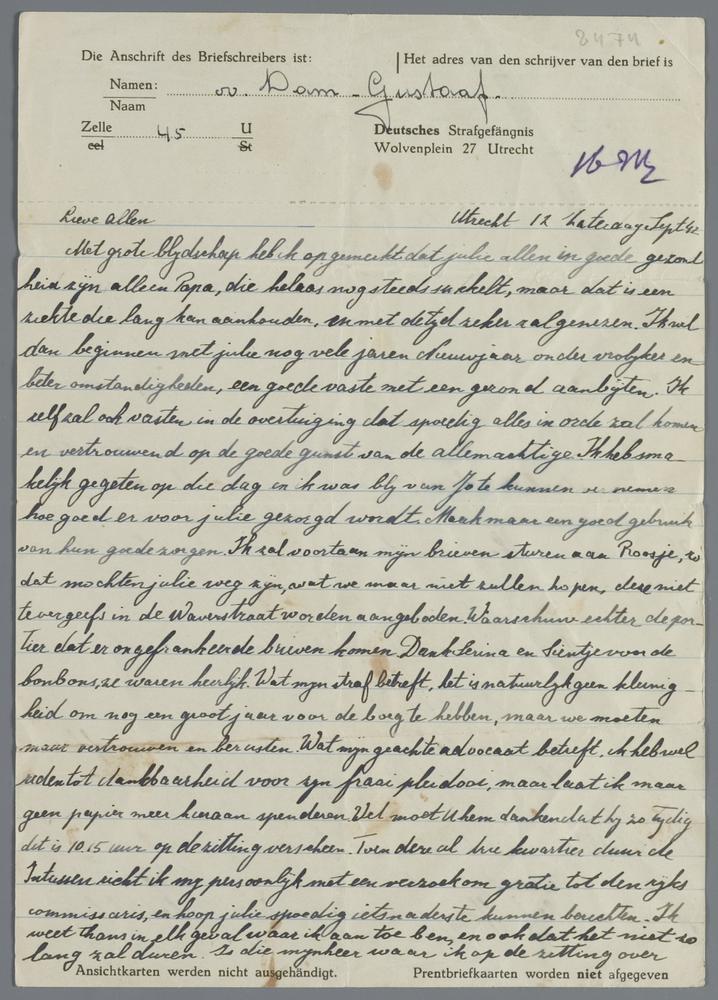 8474
Die Anschrift des Briefschreibers ist: Het adres van den schrijver van den brief is
Namen: v. Dam - Gustaaf.
Naam
Zelle 45 U Deutsches Strafgefängnis
cel St Wolvenplein 27 Utrecht
Lieve Allen Utrecht 12 Zaterdag Sept 42
Met grote blydschap heb ik opgemerkt dat julie allen in goede gezond
heid zyn alleen Papa, die helaas nog steeds sukkelt, maar dat is een
ziekte die lang kan aanhouden, en met de tyd zeker zal genezen. Ik wil
dan beginnen met julie nog vele jaren Nieuwjaar onder vrolyker en
beter omstandigheden, een goede vaste met een gezond aanbyten. Ik
zelf zal ook vasten in de overtuiging dat spoedig alles in orde zal komen
en vertrouwend op de goede gunst van de allemachtige. Ik heb sma-
kelyk gegeten op die dag en ik was bly van Jo te kunnen vernemen
hoe goed er voor julie gezorgd wordt. Maak maar een goed gebruik
van hun goede zorgen. Ik zal voortaan myn brieven sturen aan Roosje, zo
dat mochten julie weg zyn, wat we maar niet zullen hopen, deze niet
tevergeefs in de Waverstraat worden aangeboden. Waarschuw echter de por-
tier dat er ongefrankeerde brieven komen Dank Serina en Sientje voor de
bonbons, ze waren heerlyk. Wat myn straf betreft, het is natuurlyk geen kleinig-
heid om nog een groot jaar voor de boeg te hebben, maar we moeten
maar vertrouwen en berusten. Wat myn geachte advocaat betreft, ik heb wel
reden tot dankbaarheid voor zyn fraai pleidooi, maar laat ik maar
geen papier meer hieraan spenderen. Wel moet U hem danken dat hy zo tydig
dit is 10.15 uur op de zitting verscheen. Toen dere al drie kwartier duurde
Intussen richt ik my persoonlyk met een verzoek om gratie tot den ryks
commissaris, en hoop julie spoedig iets naders te kunnen berichten. Ik
weet thans in elk geval waar ik aan toe ben, en ook dat het niet zo
lang zal duren. Is die mynheer waar ik op de zitting over
Ansichtkarten werden nicht ausgehändigt. Prentbriefkaarten worden niet afgegeven